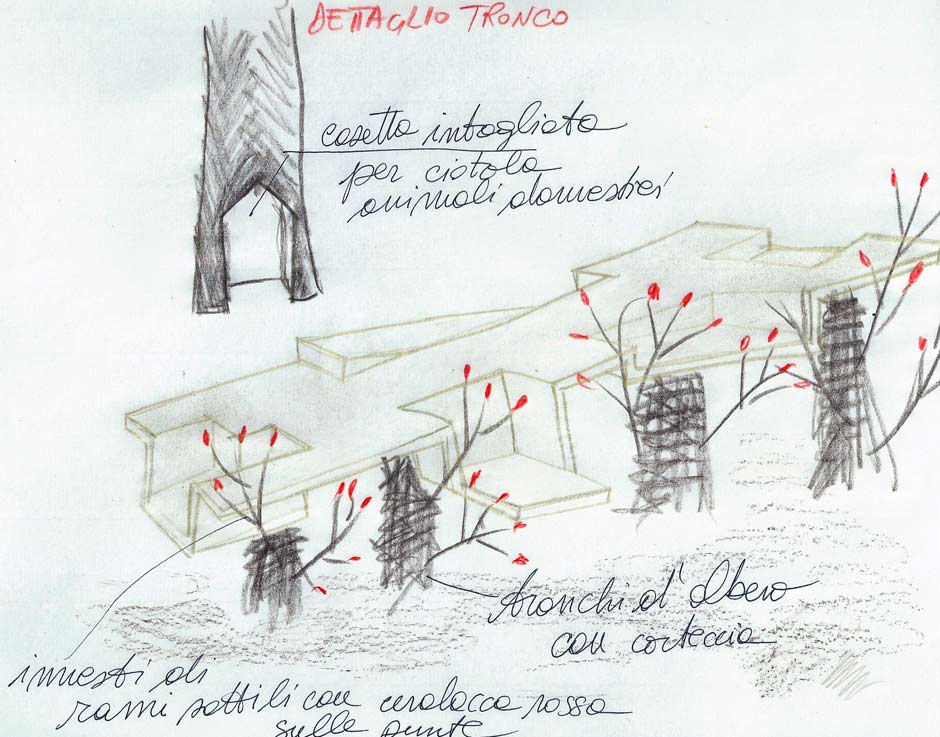 DETTAGLIO TRONCO
casetta intagliata
per ciotola
animali domestici
tronchi d'albero
con corteccia
innesti di
rami sottili con ceralacca rossa
sulle punte